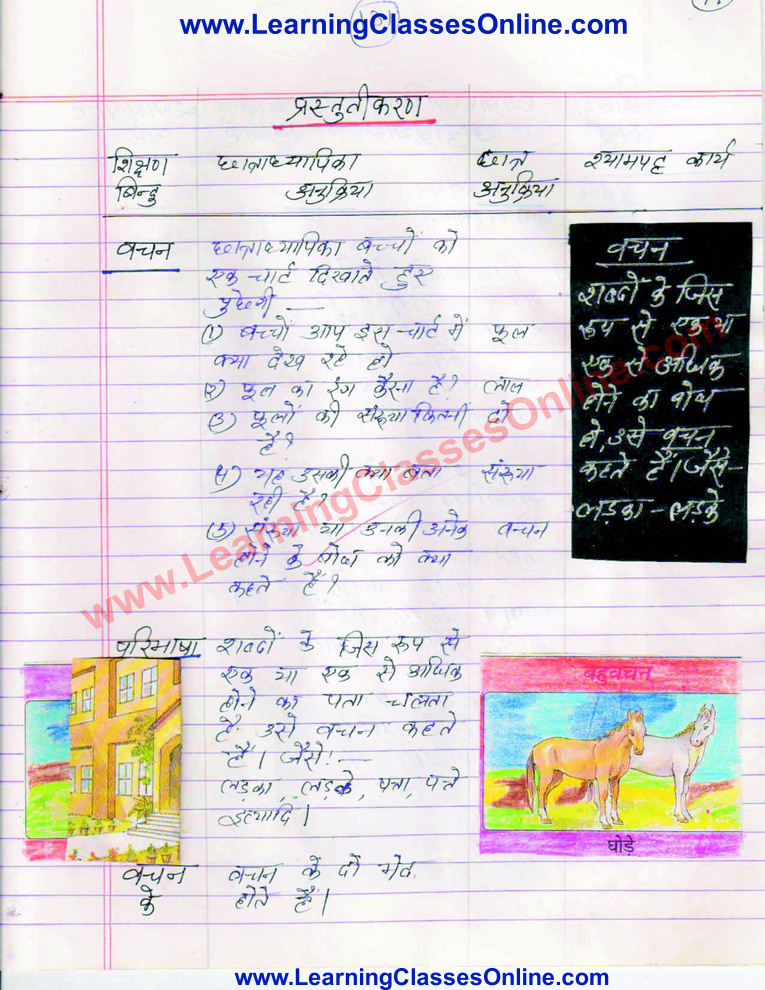 www.LearningClassesOnline.com
प्रस्तुतीकरण
शिक्षण छात्राध्यापिका छात्र श्यामपट्ट कार्य
बिन्दु अनुक्रिया अनुक्रिया
वचन छात्राध्यापिका बच्चों को
एक चार्ट दिखाते हुए
पुछेगी —
(1) बच्चों आप इस चार्ट में फूल
क्या देख रहे हो
(2) फूल का रंग कैसा है? लाल
(3) फूलों की संख्या कितनी दो
है?
(4) यह उसकी क्या बता संख्या
रही है?
(5) संख्या या उनकी अनेक वचन
होने के बोध को क्या
कहते हैं?
वचन
शब्दों के जिस
रूप से एक या
एक से अधिक
होने का बोध
हो, उसे वचन
कहते हैं। जैसे-
लड़का - लड़के
www.LearningClassesOnline.com
परिभाषा शब्दों के जिस रूप से
एक या एक से अधिक
होने का पता चलता
है उसे वचन कहते
हैं। जैसे:—
लड़का, लड़के, पत्ता, पत्ते
इत्यादि।
बहुवचन
घोड़े
वचन वचन के दो भेद
के होते हैं।
www.LearningClassesOnline.com